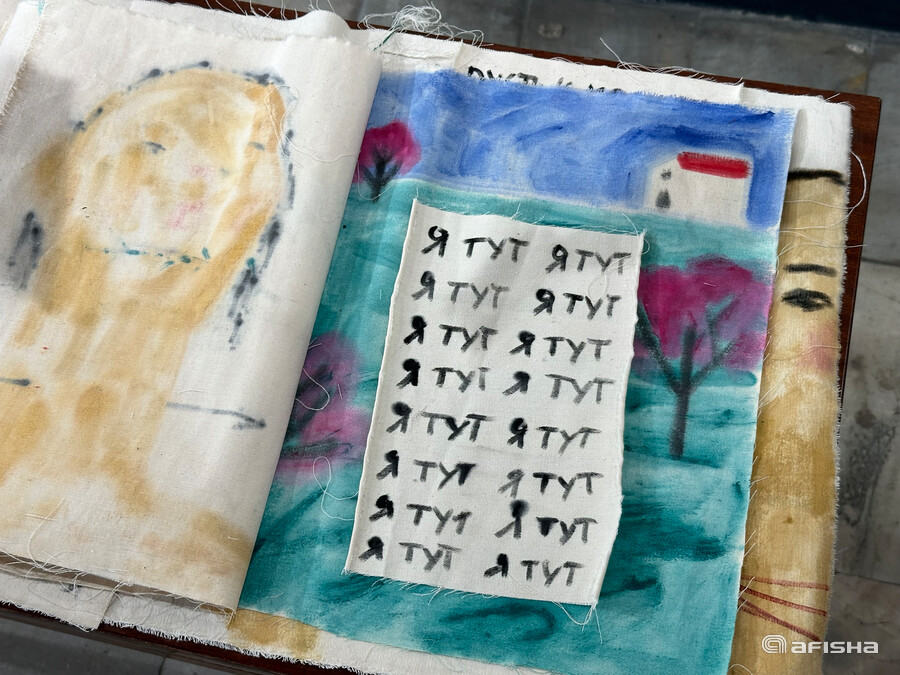 Я ТУТ Я ТУТ
Я ТУТ Я ТУТ
Я ТУТ Я ТУТ
Я ТУТ Я ТУТ
Я ТУТ Я ТУТ
Я ТУТ Я ТУТ
Я ТУТ Я ТУТ
Я ТУТ Я ТУТ
aFISHa